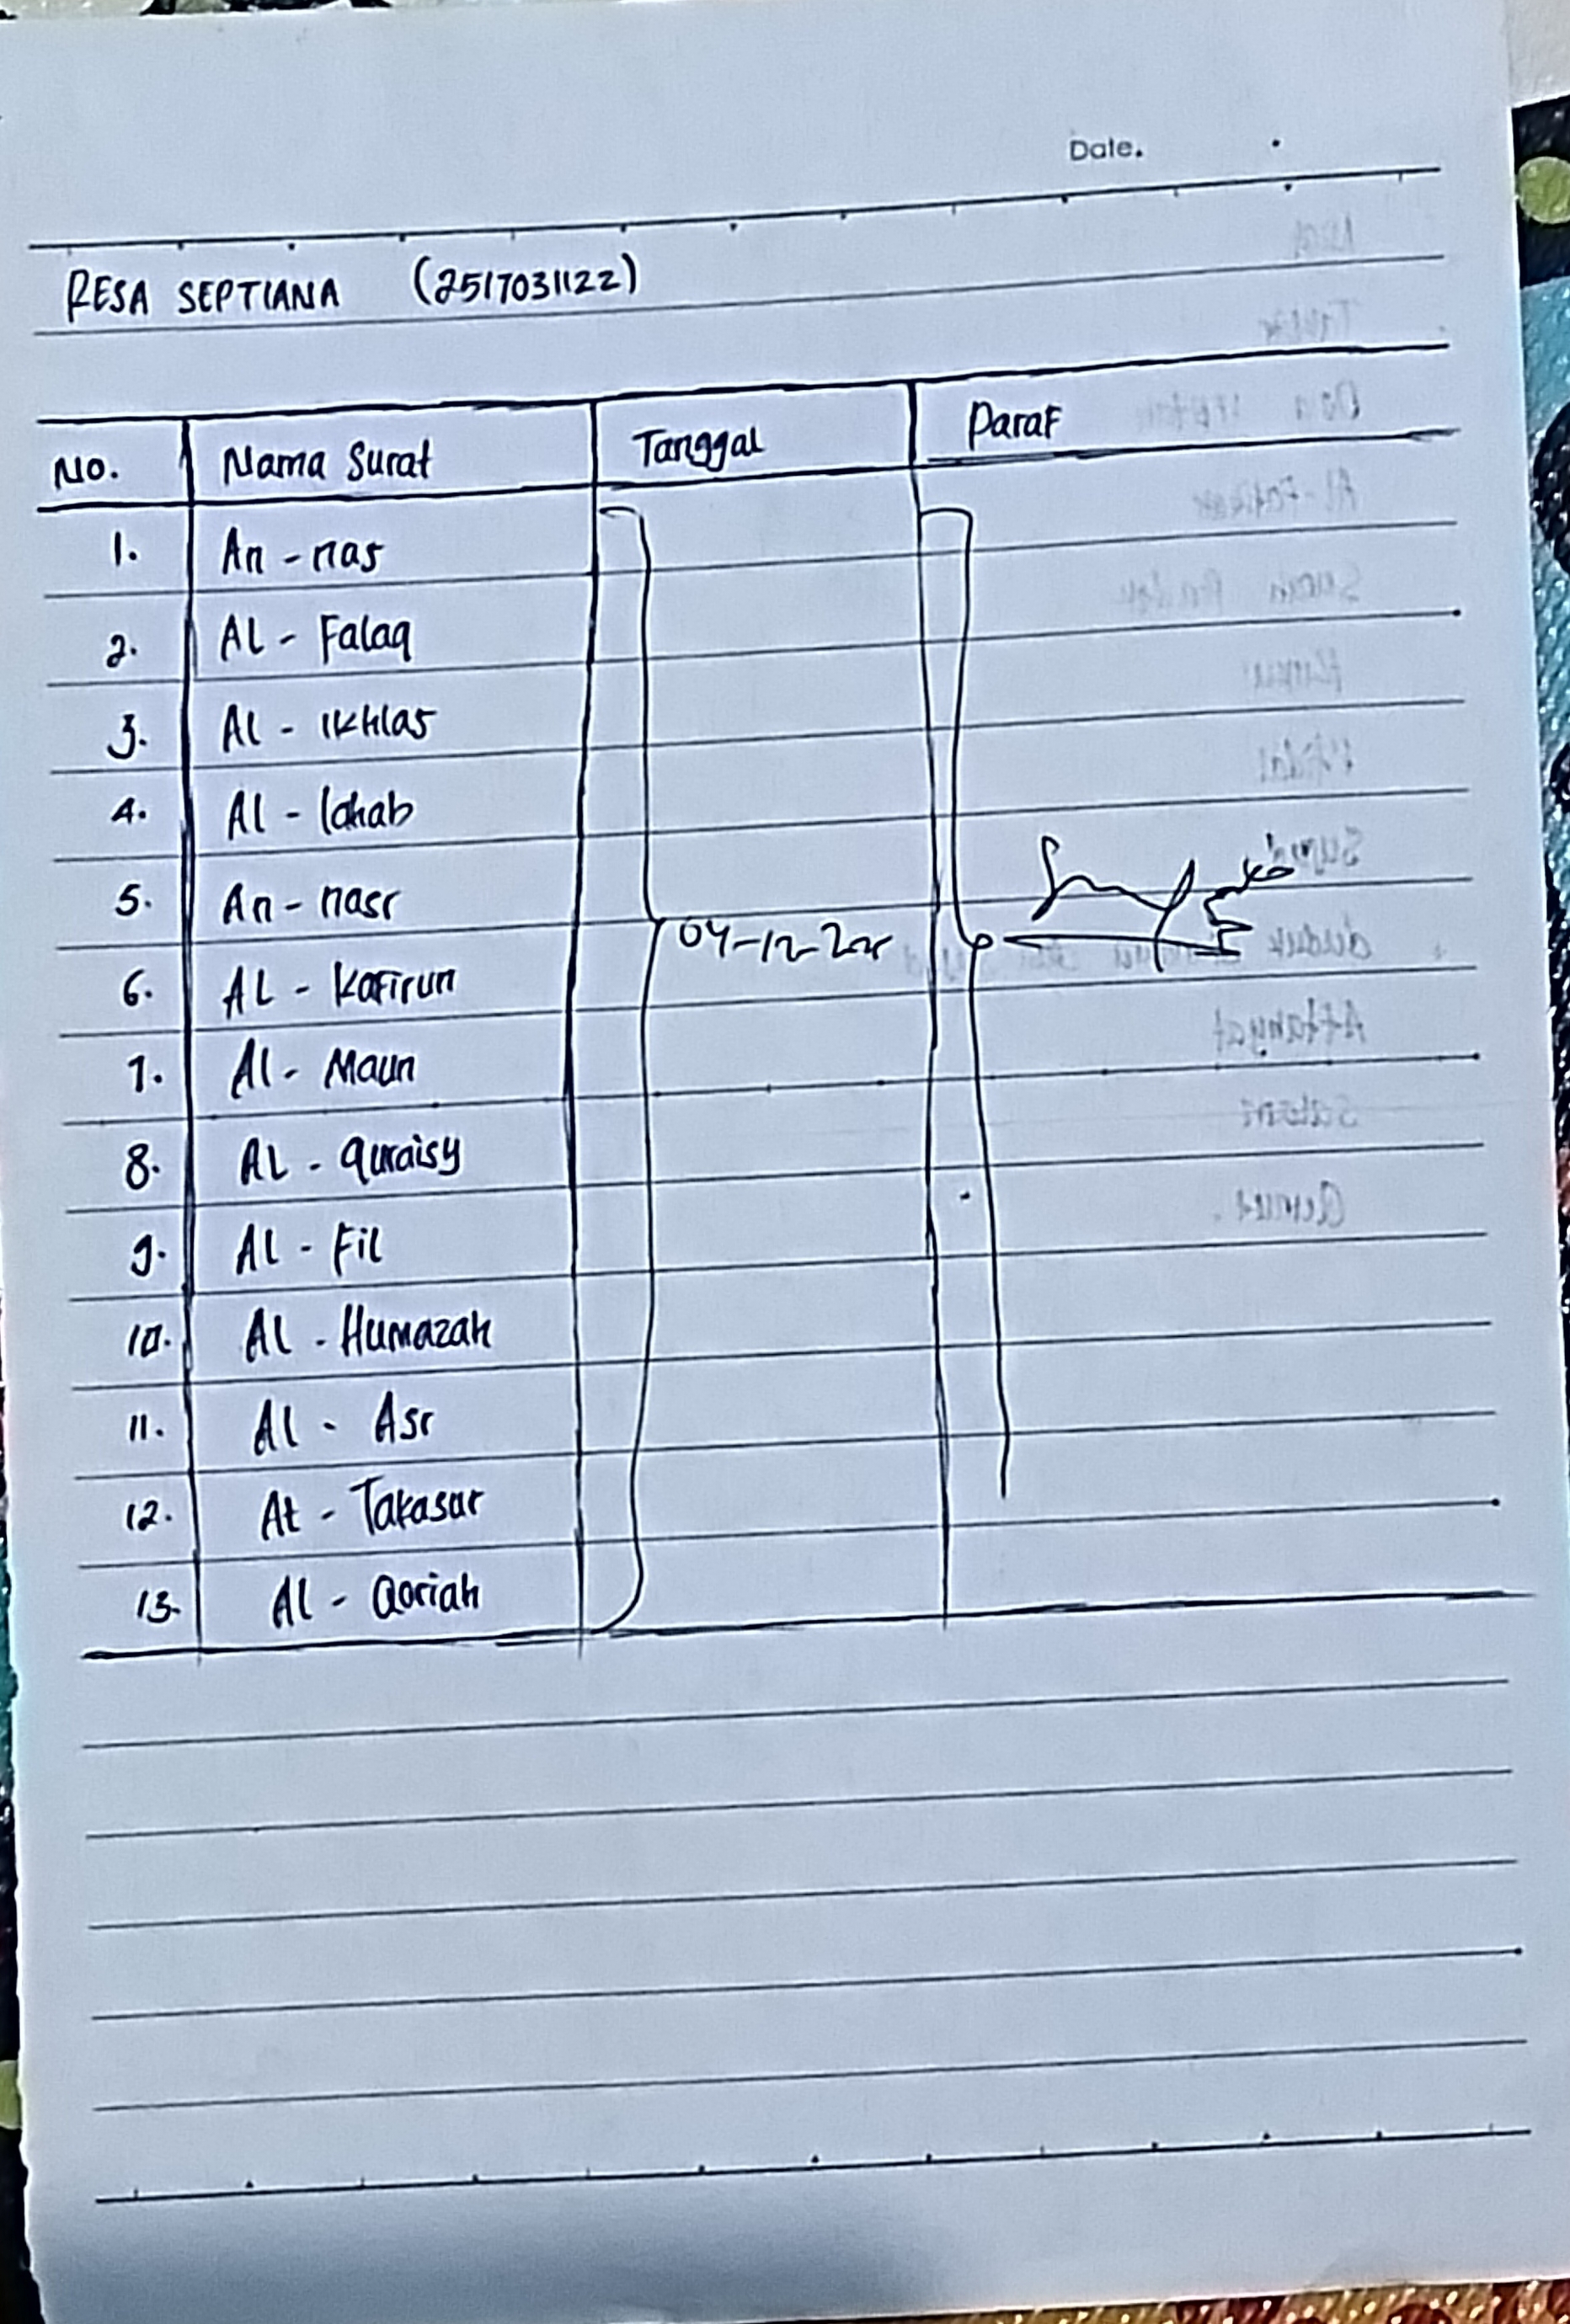 Date.
RESA SEPTIANA (2517031122)
No. Nama Surat Tanggal Paraf
1. An - nas
2. AL - Falaq
3. Al - Ikhlas
4. Al - lahab
5. An - nasr
04-12-
6. AL - Kafirun
7. Al - Maun
8. AL - quraisy
9. Al - Fil
10. Al - Humazah
11. Al - Asr
12. At - Takasur
13. Al - Qoriah